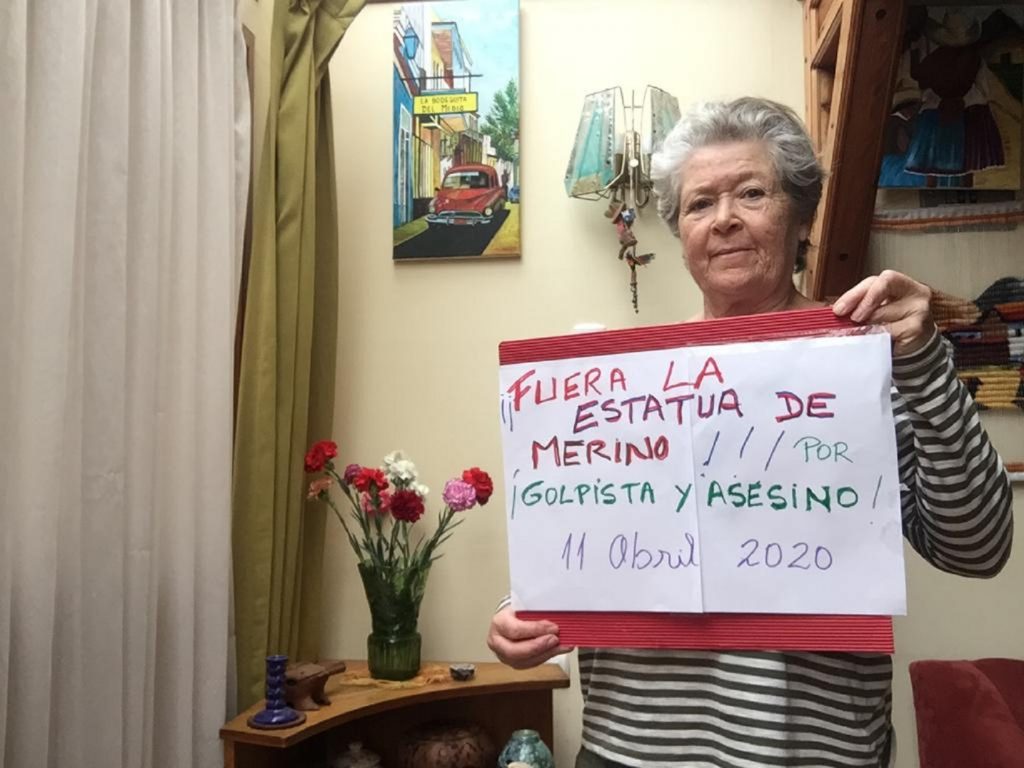 LA BODEGUITA
DEL MEDIO
¡¡FUERA LA
ESTATUA DE
MERINO !!! POR
¡GOLPISTA Y ASESINO!
11 Abril 2020